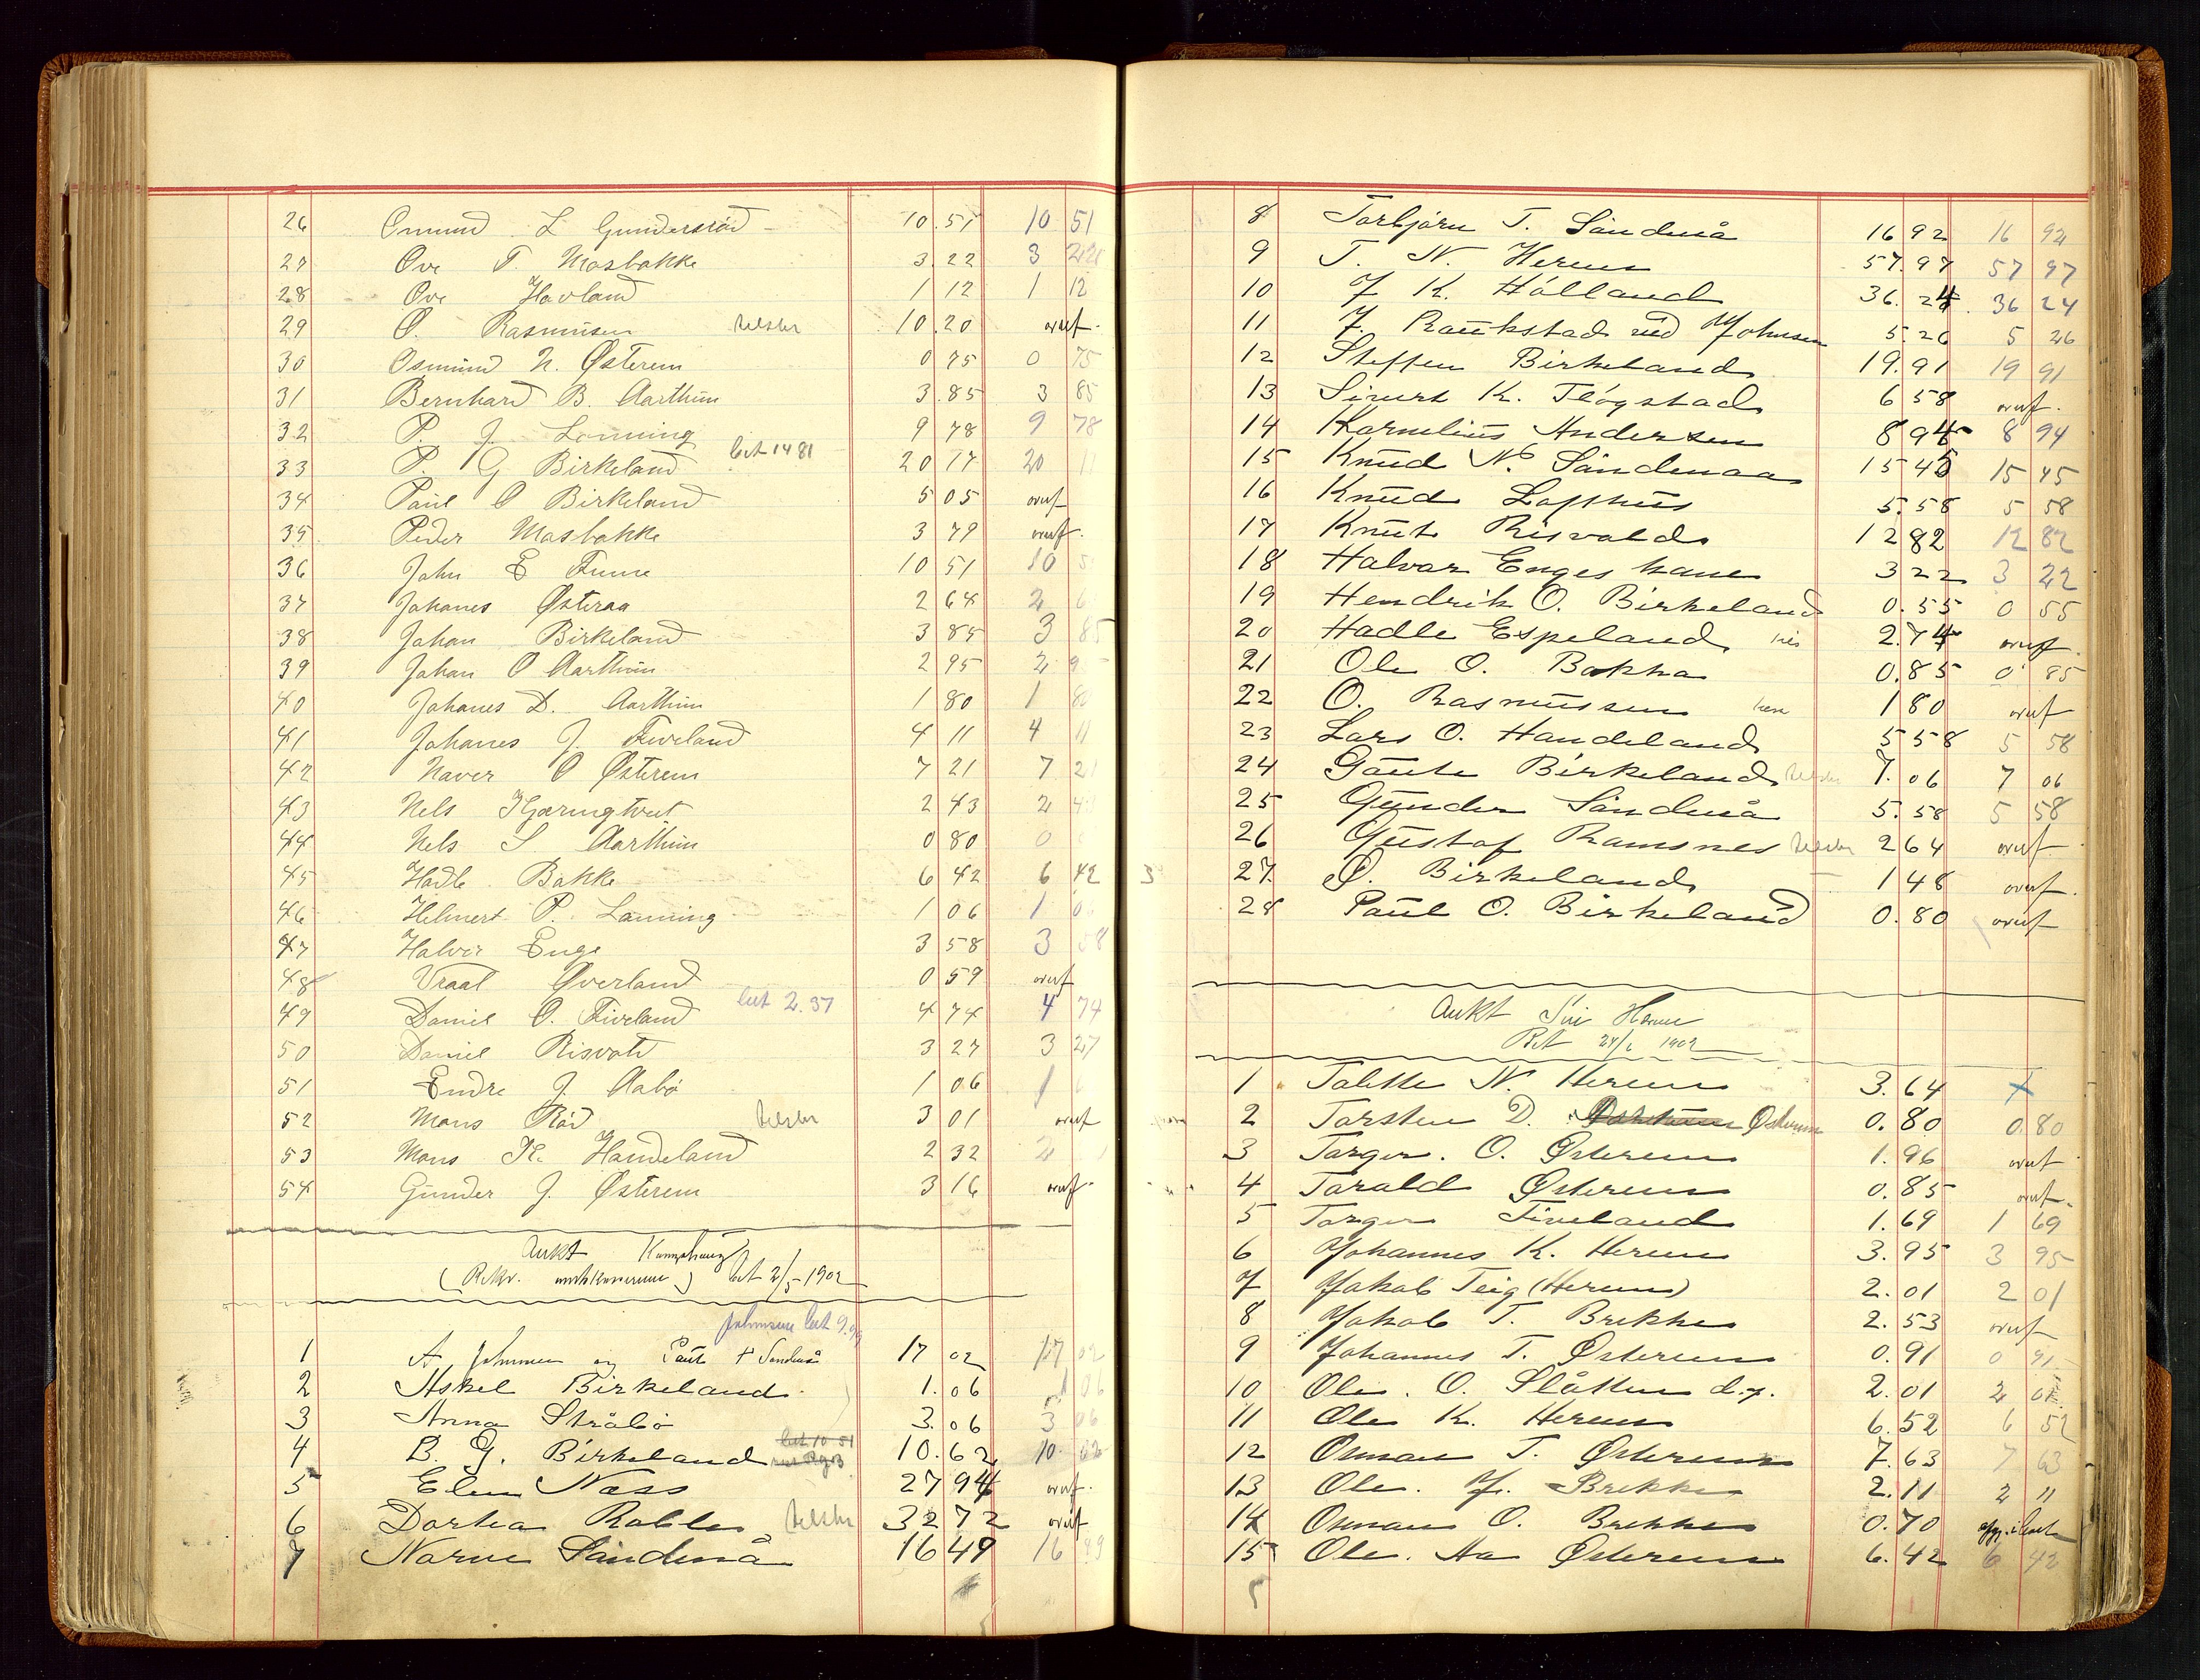 26 Omund L Gunderstad 10.51 10 51
27 Ove T. Mosbakke 3.22 3 22
28 Ove Hovland 1 12 1 12
29 O. Rasmusen 10.20 overf.
30 Osmund N. Østerem 0 75 0 75
31 Bernhard B. Aarthun 3.85 3 85
32 P. J. Lonning 9 78 9 78
33 P. G Birkeland bet 14 81 20 17 20
34 Paul O Birkeland 5 05 overf
35 Peder Mosbakke 3 79 overf.
36 John E 10 51 10
37 Johanes Østeraa 2 64 2 6
38 Johan Birkeland 3 85 3 85
39 Johan O Aarthun 2 95 2 9
40 Johanes D. Aarthun 1 80 1 80
41 Johanes J. Fiveland 4 11 4 11
42 Naver O Østerem 7 21 7 21
43 Nels Kjæringtveit 2 43 2 43
44 Nels S Aarthun 0 80 0
45 Hadle Bakke 6 42 6 42
46 Helmert P. Lanning 1 06 1 06
47 Halvor Enge 3 58 3 58
48 Vraal Øverland 0 59 overf
49 Daniel O. Fiveland bet 2.37 4 74 4 74
50 Daniel Risvold 3 27 3 27
51 Endre J. Aabø 1 06 1
52 Mons Rød 3 01 overf
53 Mons K. Handeland 2 32 2
54 Gunder J. Østerem 3 16 overf.
Aukt
(Rekv. ) bet 2/5-1902
Johnsen bet 9.99
1 A Johnsen og 17 02 17 02
2 Askel Birkeland 1.06 1 06
3 Anna Stråbø 3.06 3 06
4 B. G. Birkeland 10.62 10 62
5 Elen Næss 27 94 overf.
6 Dorthea 32 72 overf
7 Narve Sandenå 16 49 16 49
8 Torbjørn T. Sandenå 16 92 16 92
9 T. N. Herem 57.97 57 97
10 J K. Hålland 36.24 36 24
11 J. Raukstad ved Johnsen 5.26 5 26
12 Steffen Birkeland 19.91 19 91
13 Sivert K. Tløgstad 6 58 overf.
14 Kornelius Andersen 8 94 8 94
15 Knud N. Sandenaa 15 45 15 45
16 Knud Lofthus 5.58 5 58
17 Knut Risvold 12 82 12 82
18 Halvor Engeshaue 3 22 3 22
19 Hendrik O. Birkeland 0.55 0 55
20 Hadle Espeland 2.74 overf.
21 Ole O. Bakka 0.85 0 85
22 O. Rasmussen 1 80 overf
23 Lars O. Handeland 5 58 5 58
24 Gaute Birkeland 7.06 7 06
25 Gunder Sandenå 5.58 5 58
26 Gustaf Ramsnes 2 64 overf
27 O. Birkeland 1 48 overf.
28 Paul O. Birkeland 0.80 overf
Aukt Siri Herem
Bet 1902
1 Talette N. Herem 3.64 x
2 Torsten D. Østerem 0.80 0.80
3 Torger. O. Østerem 1.96 overf
4 Torald Østerem 0.85 overf.
5 Torger Fiveland 1.69 1 69
6 Johannes K. Herem 3.95 3 95
7 Jakob Teig (Herem) 2.01 2 01
8 Jakob T. Brekke 2.53 overf
9 Johannes T. Østerem 0.91 0 91
10 Ole. O. Slåtten d.y. 2.01 2 01
11 Ole K. Herem 6.52 6 52
12 Osman T. Østerem 7.63 7 63
13 Ole. J. Brekke 2.11 2 11
14 Osman O. Brekke 0.70
15 Ole. Aa Østerem 6.42 6 42